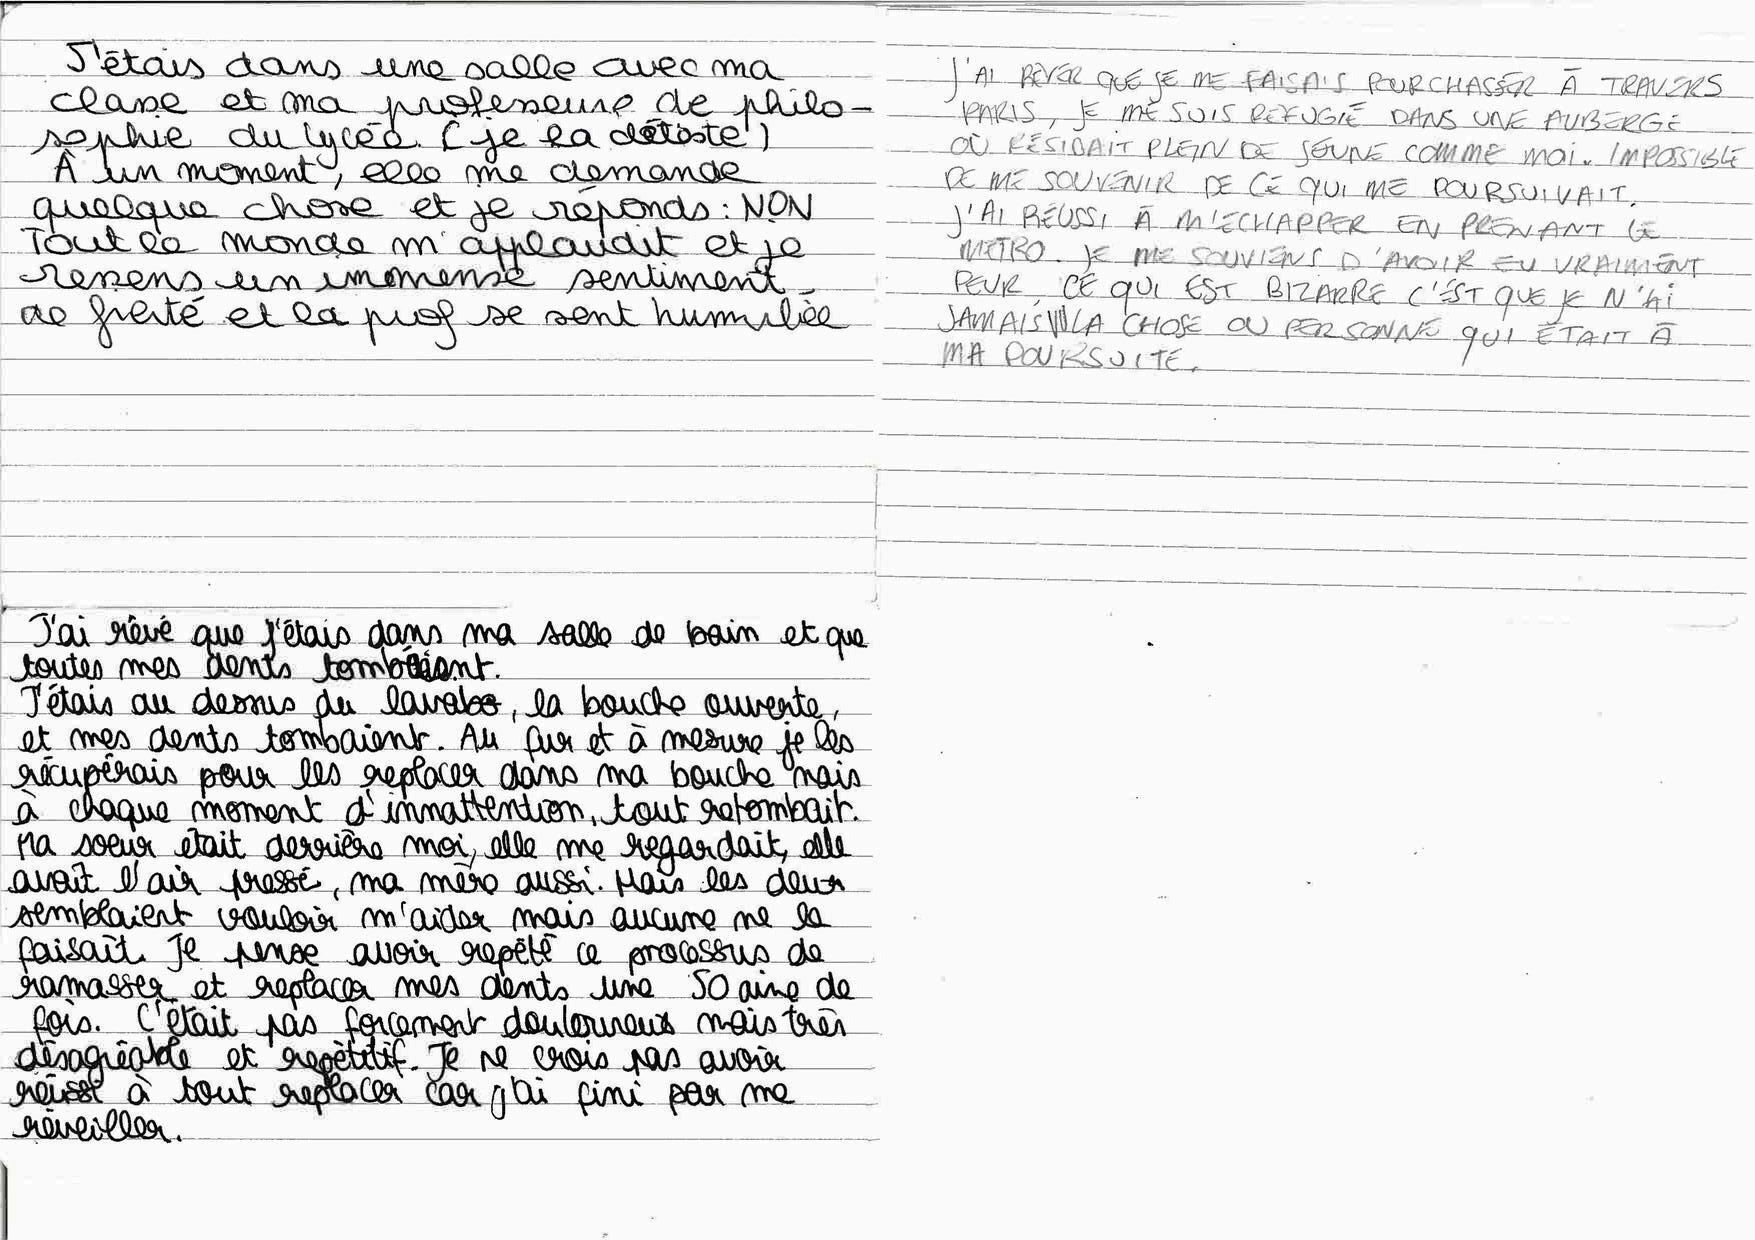 J'étais dans une salle avec ma
classe et ma professeure de philo-
sophie du lycée. (je la déteste)
À un moment, elle me demande
quelque chose et je réponds : NON
Tout le monde m'applaudit et je
ressens un immense sentiment
de fierté et la prof se sent humiliée
J'AI RÊVER QUE JE ME FAISAIS POURCHASSER À TRAVERS
PARIS, JE ME SUIS REFUGIÉ DANS UNE AUBERGE
OÙ RÉSIDAIT PLEIN DE JEUNE COMME MOI. IMPOSSIBLE
DE ME SOUVENIR DE CE QUI ME POURSUIVAIT.
J'AI RÉUSSI À M'ÉCHAPPER EN PRENANT LE
METRO. JE ME SOUVIENS D'AVOIR EU VRAIMENT
PEUR. CE QUI EST BIZARRE C'EST QUE JE N'AI
JAMAIS VU LA CHOSE OU PERSONNE QUI ÉTAIT À
MA POURSUITE.
J'ai rêvé que j'étais dans ma salle de bain et que
toutes mes dents tombaient.
J'étais au dessus du lavabo, la bouche ouverte,
et mes dents tombaient. Au fur et à mesure je les
récupérais pour les replacer dans ma bouche mais
à chaque moment d'innattention, tout retombait.
Ma soeur était derrière moi, elle me regardait, elle
avait l'air pressé, ma mère aussi. Mais les deux
semblaient vouloir m'aider mais aucune ne le
faisait. Je pense avoir repété ce processus de
ramasser et replacer mes dents une 50aine de
fois. C'était pas forcement douloureux mais très
désagréable et repétitif. Je ne crois pas avoir
réussi à tout replacer car j'ai fini par me
réveiller.